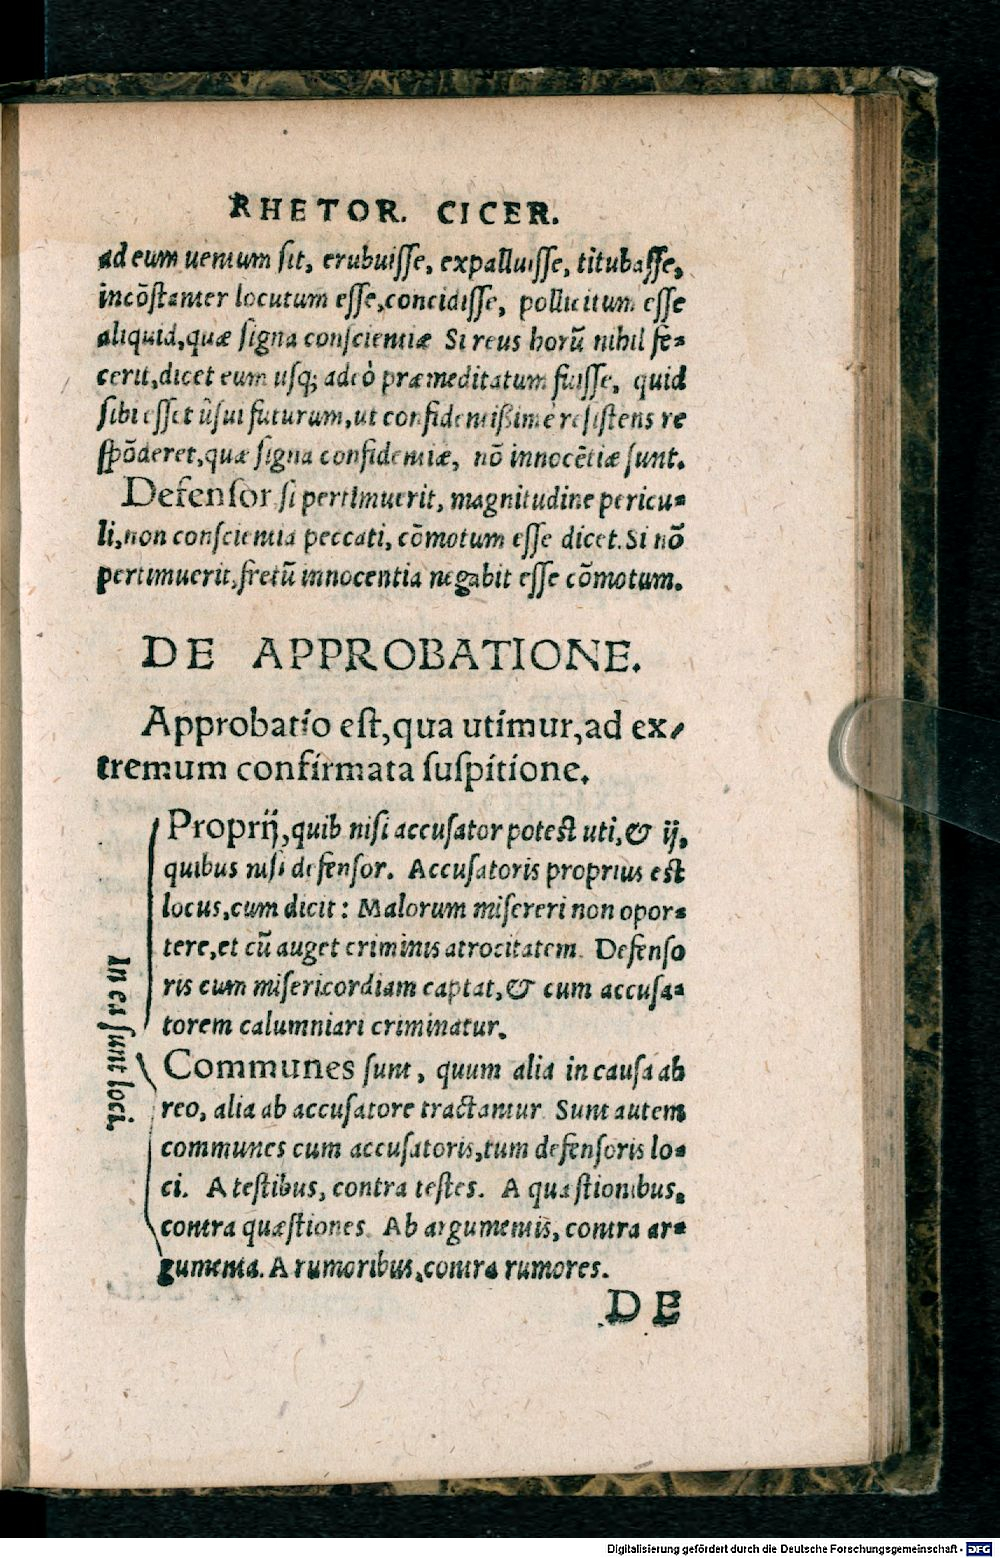 RHETOR. CICER.
ad eum uentum sit, erubuisse, expalluisse, titubasse,
incōstanter locutum esse, concidisse, pollicitum esse
aliquid, quæ signa conscientiæ Si reus horū nihil fe-
cerit, dicet eum usq; adeò præmeditatum fuisse, quid
sibi esset ûsui futurum, ut confidentißimè resistens re
spōderet, quæ signa confidentiæ, nō innocētiæ sunt.
Defensor si pertimuerit, magnitudine pericu-
li, non conscientia peccati, cōmotum esse dicet. Si nō
pertimuerit, fretū innocentia negabit esse cōmotum.
DE APPROBATIONE.
Approbatio est, qua utimur, ad ex-
tremum confirmata suspitione.
In ea sunt loci.
Proprij, quib nisi accusator potest uti, & ij,
quibus nisi defensor. Accusatoris proprius est
locus, cum dicit: Malorum misereri non opor-
tere, et cū auget criminis atrocitatem. Defenso
ris cum misericordiam captat, & cum accusa-
torem calumniari criminatur.
Communes sunt, quum alia in causa ab
reo, alia ab accusatore tractantur Sunt autem
communes cum accusatoris, tum defensoris lo-
ci. A testibus, contra testes. A quæstionibus,
contra quæstiones. Ab argumentis, contra ar-
gumenta. A rumoribus, contra rumores.
DE
Digitalisierung gefördert durch die Deutsche Forschungsgemeinschaft - DFG